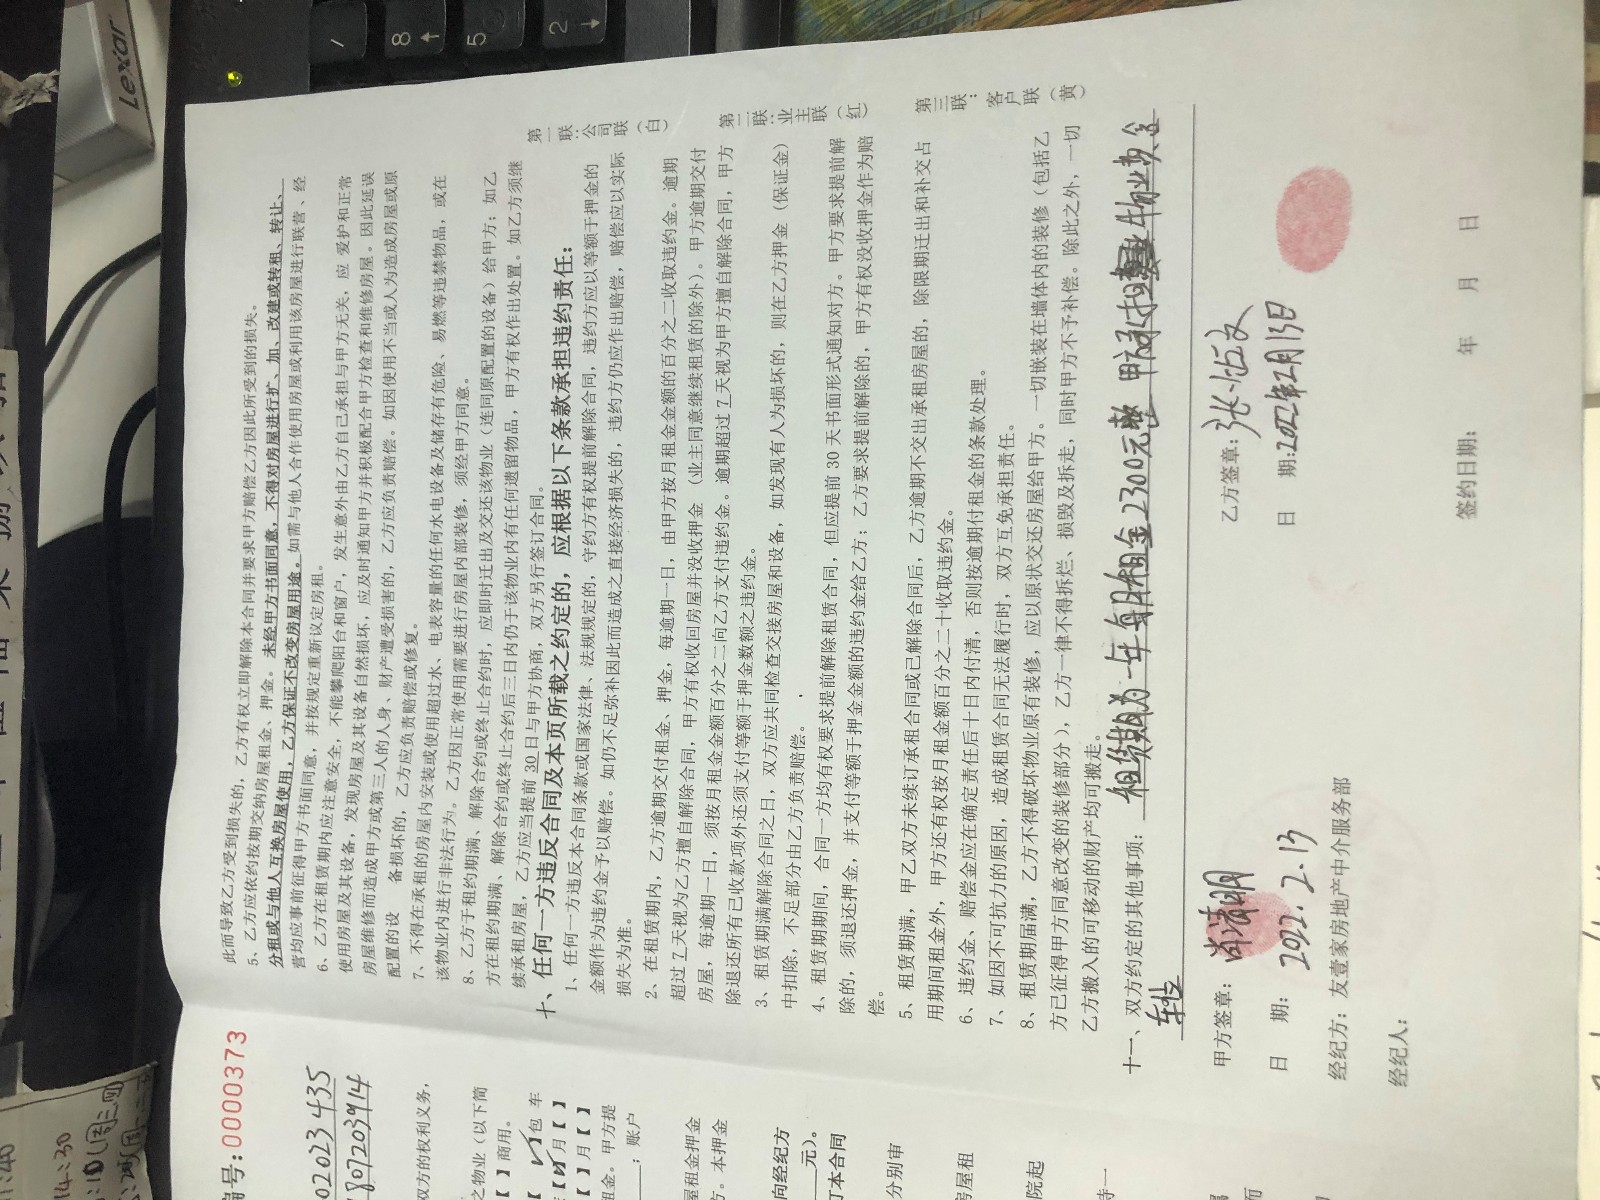 此而导致乙方受到损失的，乙方有权立即解除本合同并要求甲方赔偿乙方因此所受到的损失。
5、乙方应依约按期交纳房屋租金、押金。未经甲方书面同意，不得对房屋进行扩、加、改建或转租、转让、
分租或与他人互换房屋使用，乙方保证不改变房屋用途。如需与他人合作使用房屋或利用该房屋进行联营、经
营均应事前征得甲方书面同意，并按规定重新议定房租。
6、乙方在租赁期内应注意安全，不能攀爬阳台和窗户，发生意外由乙方自己承担与甲方无关，应 爱护和正常
使用房屋及其设备，发现房屋及其设备自然损坏，应及时通知甲方并积极配合甲方检查和维修房屋。因此延误
房屋维修而造成甲方或第三人的人身、财产遭受损害的，乙方应负责赔偿。如因使用不当或人为造成房屋或原
配置的设 备损坏的，乙方应负责赔偿或修复。
7、不得在承租的房屋内安装或使用超过水、电表容量的任何水电设备及储存有危险、易燃等违禁物品，或在
该物业内进行非法行为。乙方因正常使用需要进行房屋内部装修，须经甲方同意。
8、乙方于租约期满、解除合约或终止合约时，应即时迁出及交还该物业（连同原配置的设备）给甲方；如乙
方在租约期满、解除合约或终止合约后三日内仍于该物业内有任何遗留物品，甲方有权作出处置。如乙方须继
续承租房屋，乙方应当提前30日与甲方协商，双方另行签订合同。
十、任何一方违反合同及本页所载之约定的，应根据以下条款承担违约责任：
1、任何一方违反本合同条款或国家法律、法规规定的，守约方有权提前解除合同，违约方应以等额于押金的
金额作为违约金予以赔偿。如仍不足弥补因此而造成之直接经济损失的，违约方仍应作出赔偿，赔偿应以实际
损失为准。
2、在租赁期内，乙方逾期交付租金、押金，每逾期一日，由甲方按月租金金额的百分之二收取违约金。逾期
超过7天视为乙方擅自解除合同，甲方有权收回房屋并没收押金（业主同意继续租赁的除外）。甲方逾期交付
房屋，每逾期一日，须按月租金金额百分之二向乙方支付违约金。逾期超过7天视为甲方擅自解除合同，甲方
除退还所有已收款项外还须支付等额于押金数额之违约金。
3、租赁期满解除合同之日，双方应共同检查交接房屋和设备，如发现有人为损坏的，则在乙方押金（保证金）
中扣除，不足部分由乙方负责赔偿。
4、租赁期期间，合同一方均有权要求提前解除租赁合同，但应提前30天书面形式通知对方。甲方要求提前解
除的，须退还押金，并支付等额于押金金额的违约金给乙方；乙方要求提前解除的，甲方有权没收押金作为赔
偿。
5、租赁期满，甲乙双方未续订承租合同或已解除合同后，乙方逾期不交出承租房屋的，除限期迁出和补交占
用期间租金外，甲方还有权按月租金额百分之二十收取违约金。
6、违约金、赔偿金应在确定责任后十日内付清，否则按逾期付租金的条款处理。
7、如因不可抗力的原因，造成租赁合同无法履行时，双方互免承担责任。
8、租赁期届满，乙方不得破坏物业原有装修，应以原状交还房屋给甲方。一切嵌装在墙体内的装修（包括乙
方已征得甲方同意改变的装修部分），乙方一律不得拆烂、损毁及拆走，同时甲方不予补偿。除此之外，一切
乙方搬入的可移动的财产均可搬走。
十一、双方约定的其他事项：租赁期为一年每月租金2300元整 甲方承担物业费含
车位
甲方签章：
乙方签章：
日 期：2022.2.13
日 期:2022年2月13日
经纪方：友壹家房地产中介服务部
经纪人：
签约日期： 年 月 日
第一联：公司联（白）
第二联：业主联（红）
第三联：客户联（黄）
编号:0000373
02023435
1807203914
双方的权利义务，
之物业（以下简
【 】商用。
】包 车
】月【 】
】月【 】
租金。甲方提
；账户
屋租金押金
方。本押金
向经纪方
元）。
订本合同
分别审
房屋租
院起
持一
Lexar
8
5
2
14:30